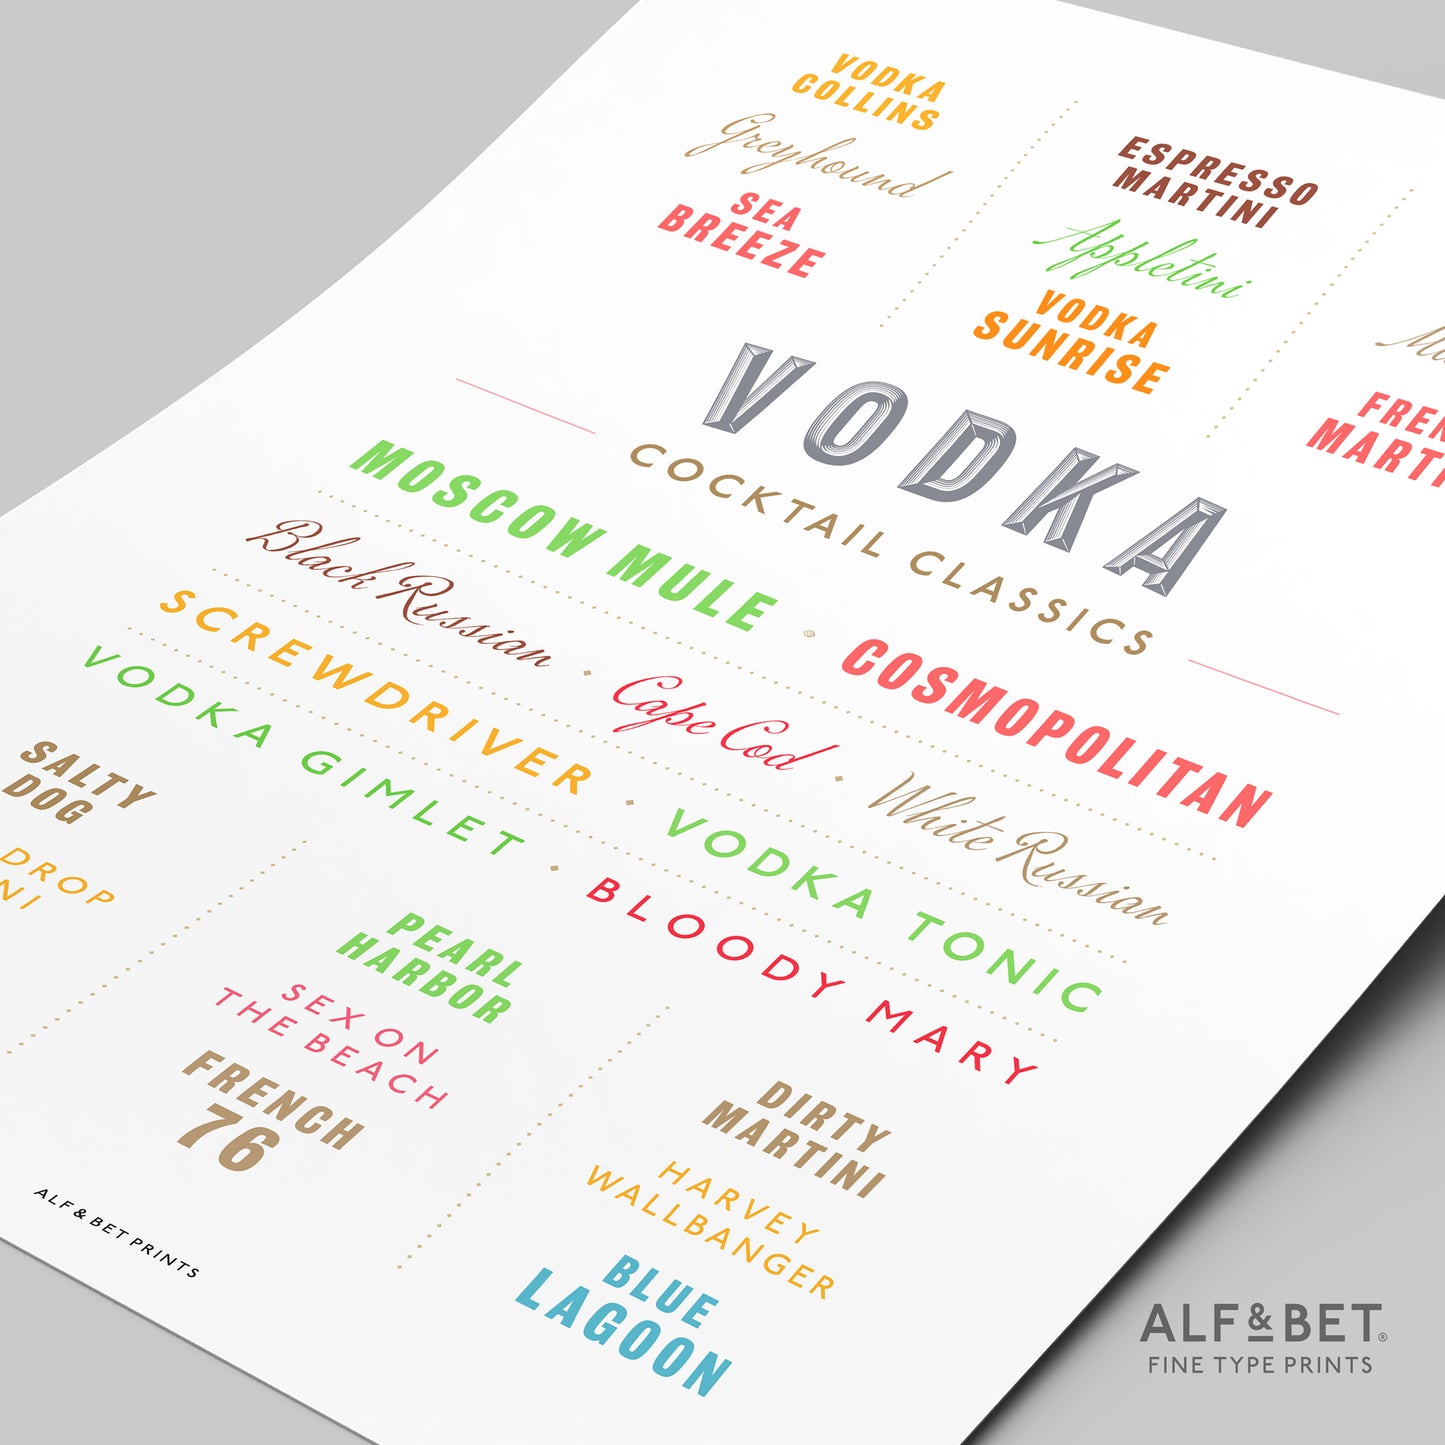 VODKA
COLLINS
Greyhound
SEA
BREEZE
ESPRESSO
MARTINI
Appletini
VODKA
SUNRISE
VODKA
COCKTAIL CLASSICS
MOSCOW MULE COSMOPOLITAN
Black Russian Cape Cod White Russian
SCREWDRIVER VODKA TONIC
VODKA GIMLET BLOODY MARY
SALTY
DOG
DROP
PEARL
HARBOR
SEX ON
THE BEACH
FRENCH
76
DIRTY
MARTINI
HARVEY
WALLBANGER
BLUE
LAGOON
ALF & BET PRINTS
ALF & BET®
FINE TYPE PRINTS